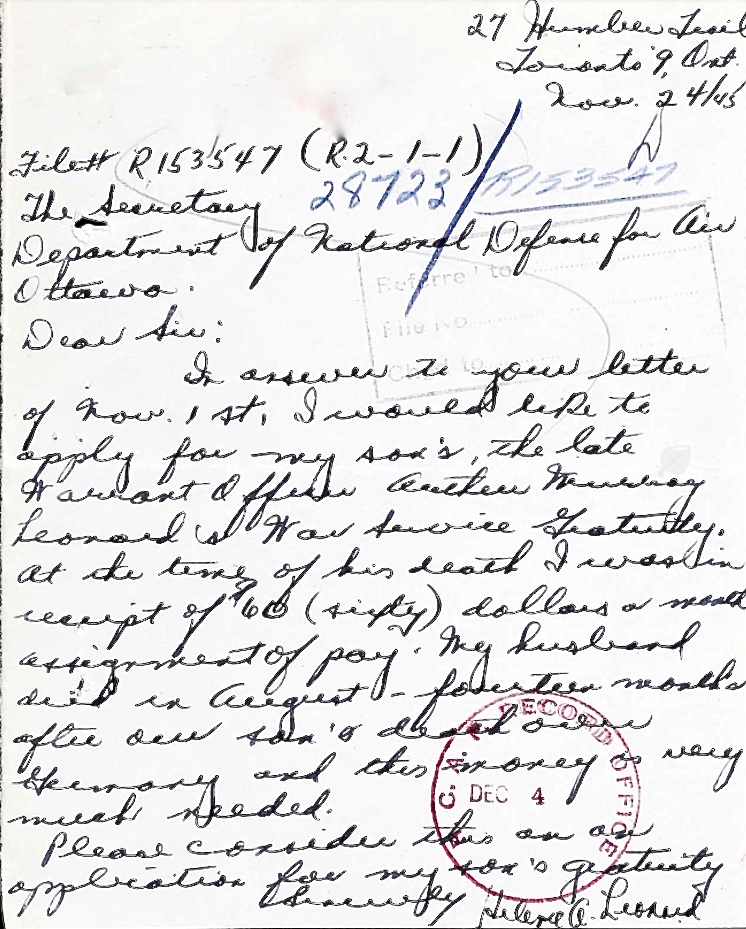 27 Humber Trail
Toronto 9, Ont.
Nov. 24/45
File# R153547 (R.2-1-1)
28723 / R153547
The Secretary
Department of National Defense for Air
Ottawa.
Referred to
File No
Chgd to
Dear Sir:
In answer to your letter
of Nov. 1st, I would like to
apply for my son's, the late
Warrant Officer Arthur Murray
Leonard's War Service Gratuity.
At the time of his death I was in
receipt of $60 (sixty) dollars a month
assignment of pay. My husband
died in August - fourteen months
after our son's death over
Germany and this money is very
much needed.
Please consider this as an
application for my son's gratuity
Sincerely Helene A. Leonard
R.C.A.F. RECORD OFFICE
DEC 4